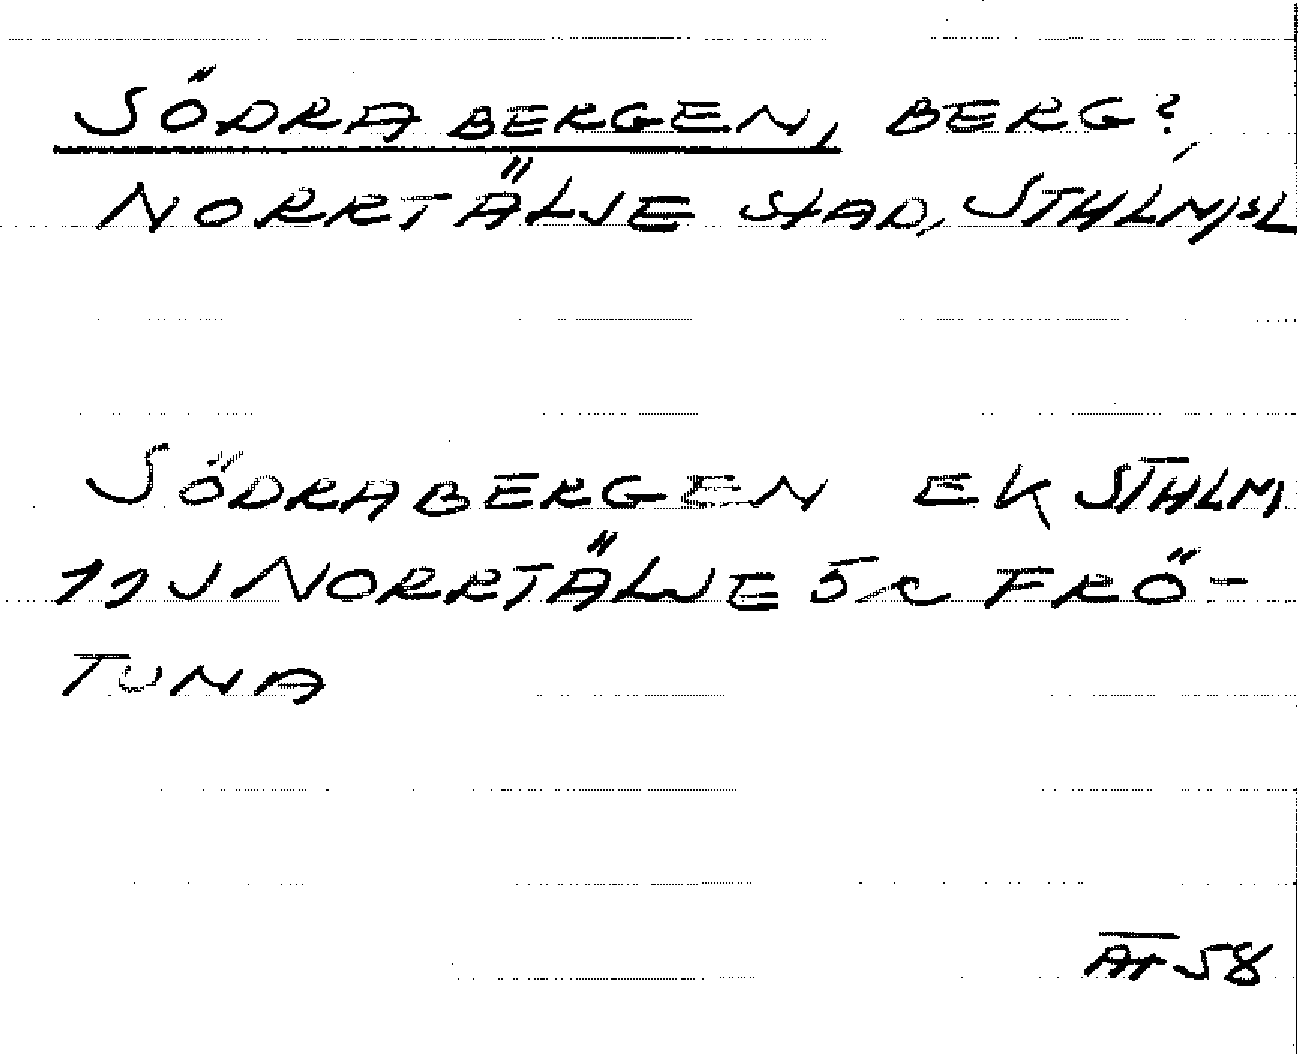 SÖDRA BERGEN, BERG?,
NORRTÄLJE STAD, STHLMSL
SÖDRABERGEN EK STHLM
11J NORRTÄLJE 5c FRÖ-
TUNA
58